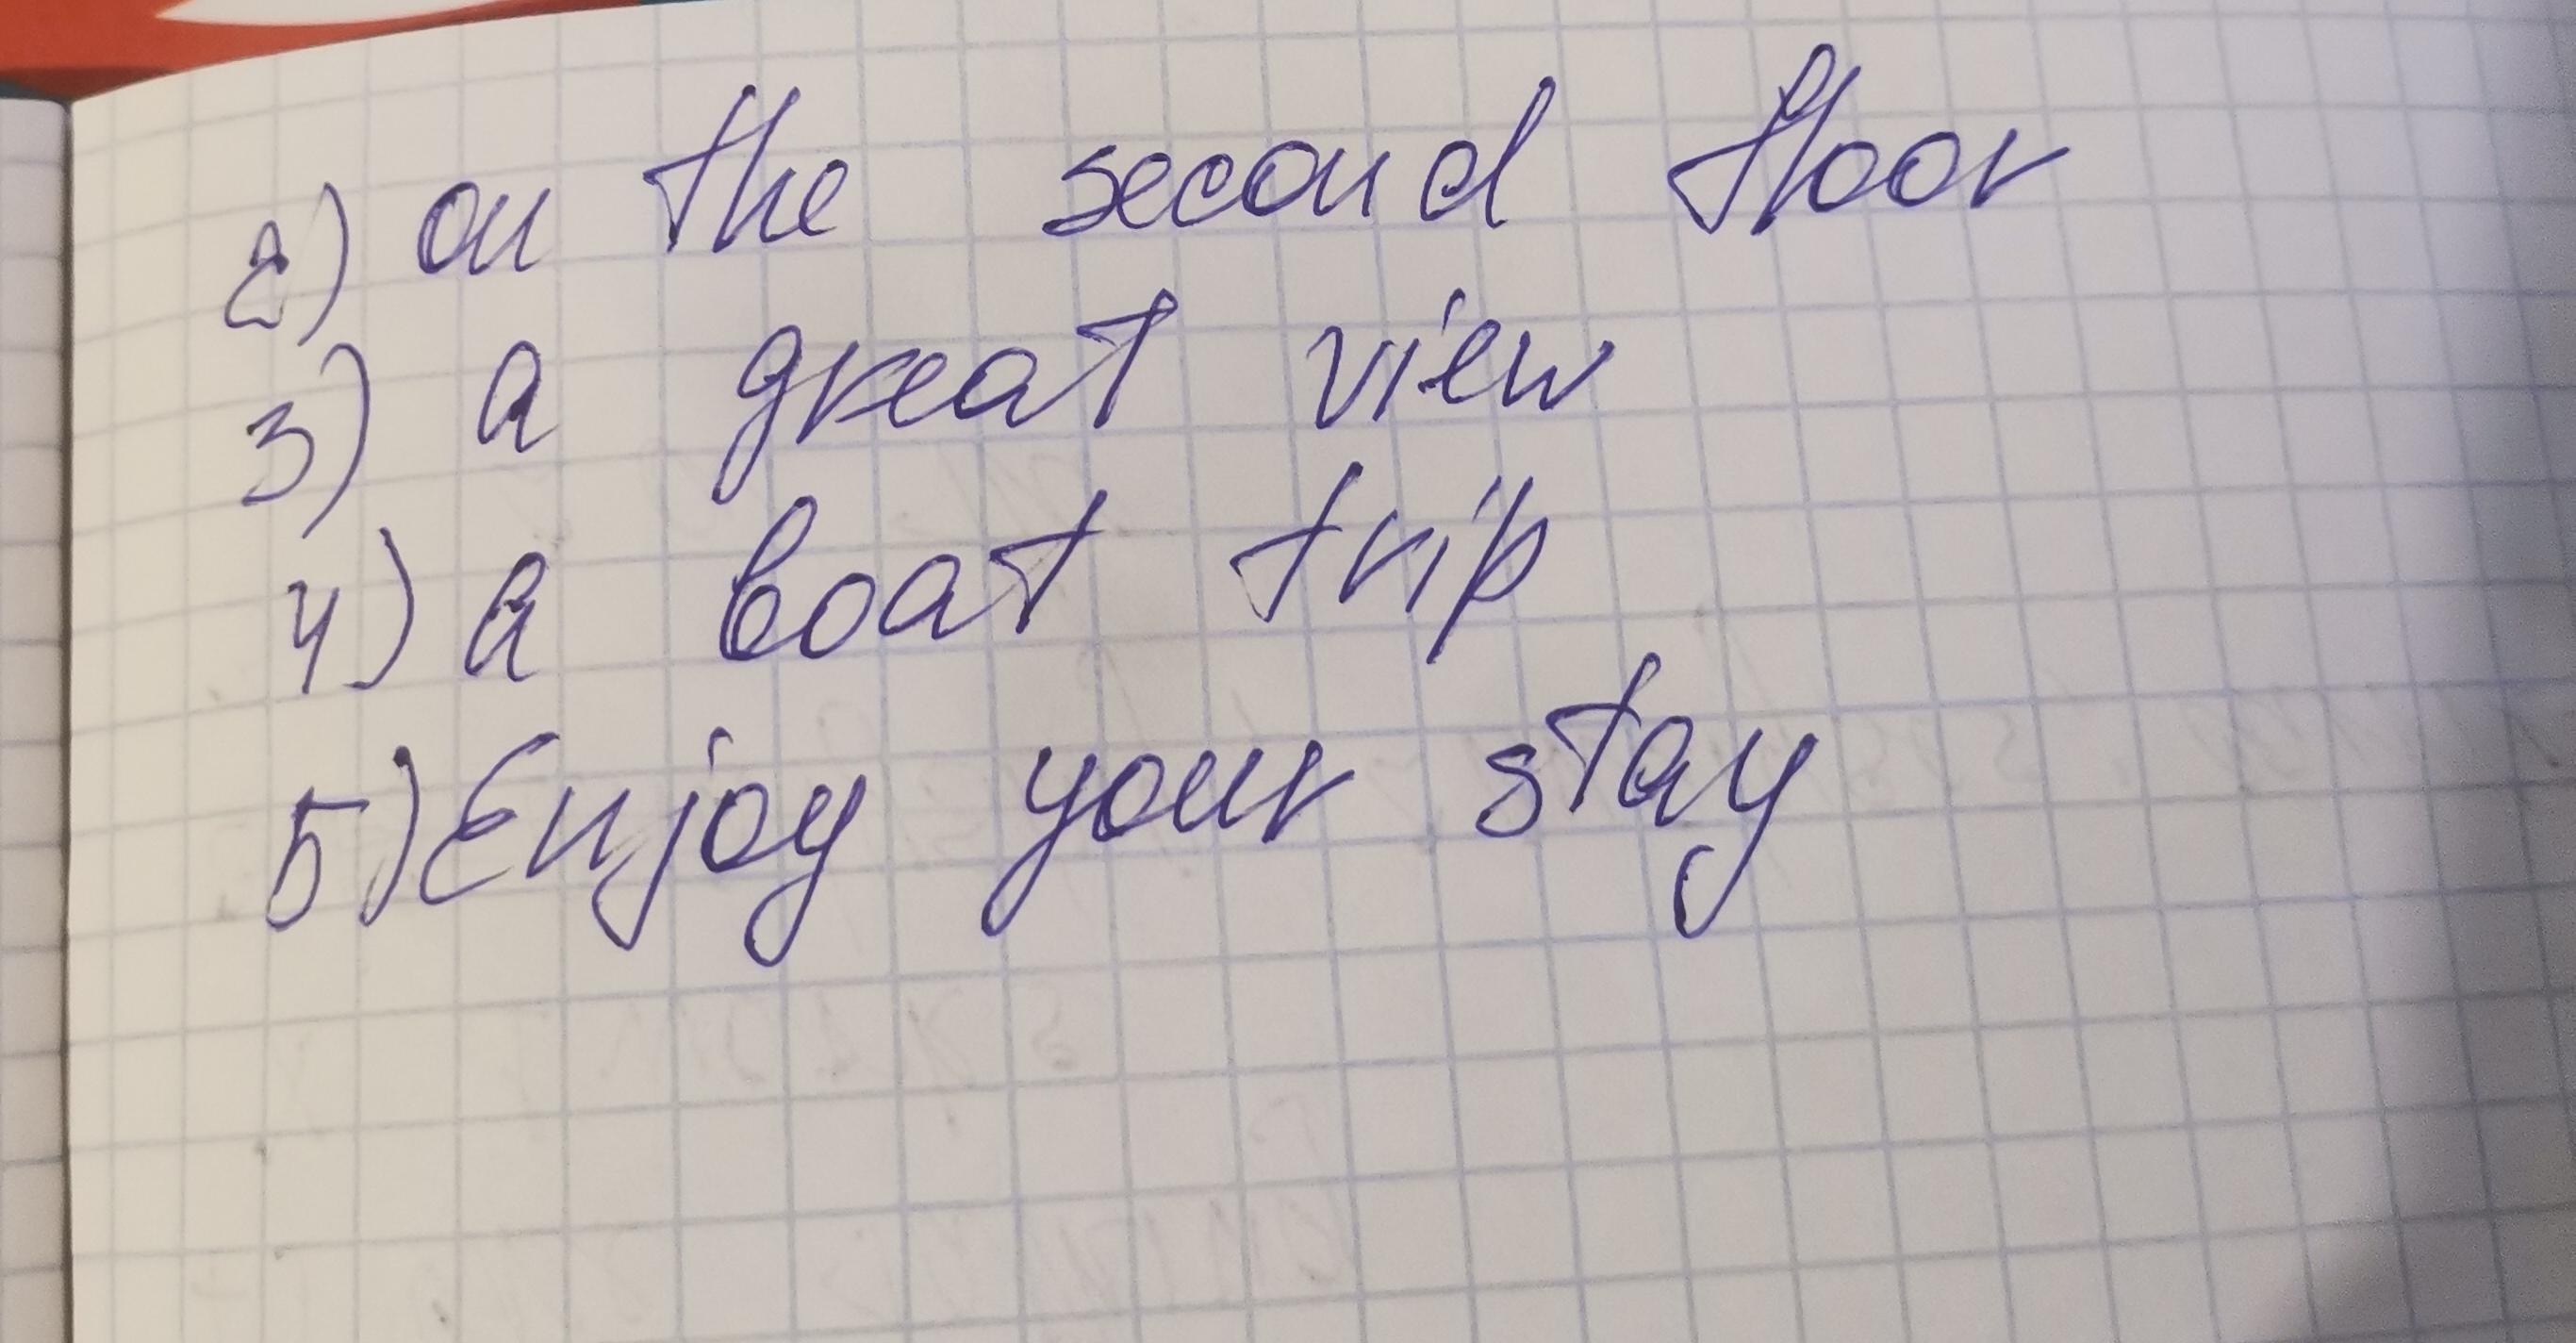 2) on the second floor
3) a great view
4) a boat trip
5) Enjoy your stay